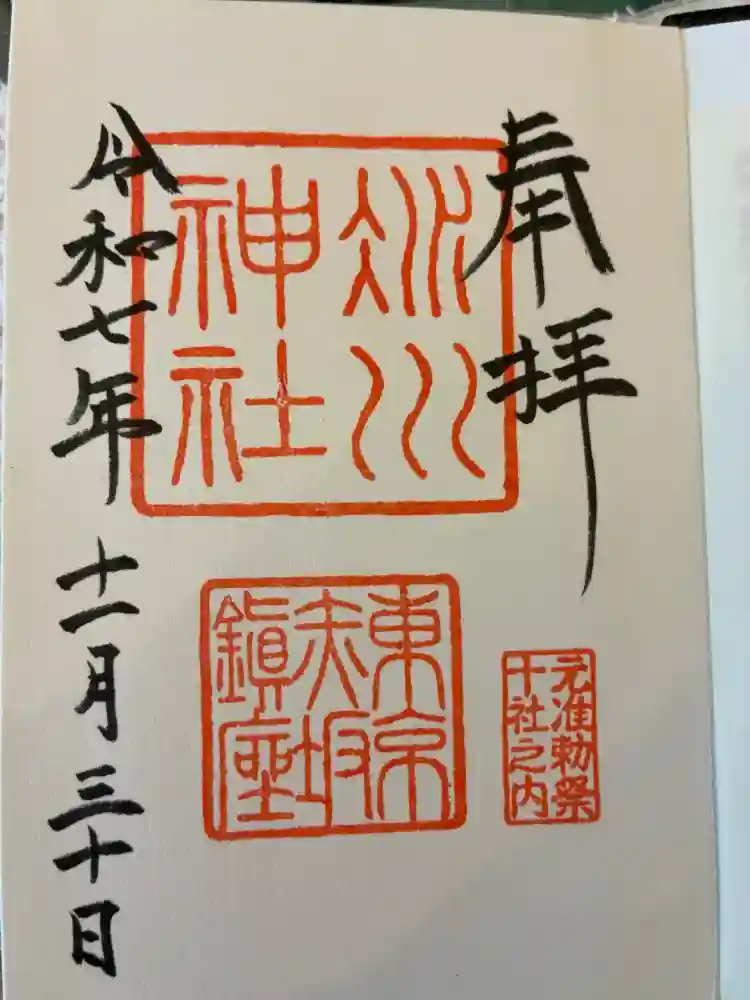 奉拝
氷川
神社
東京
赤坂
鎮座
元准勅祭
十社之内
令和七年 十一月 三十日